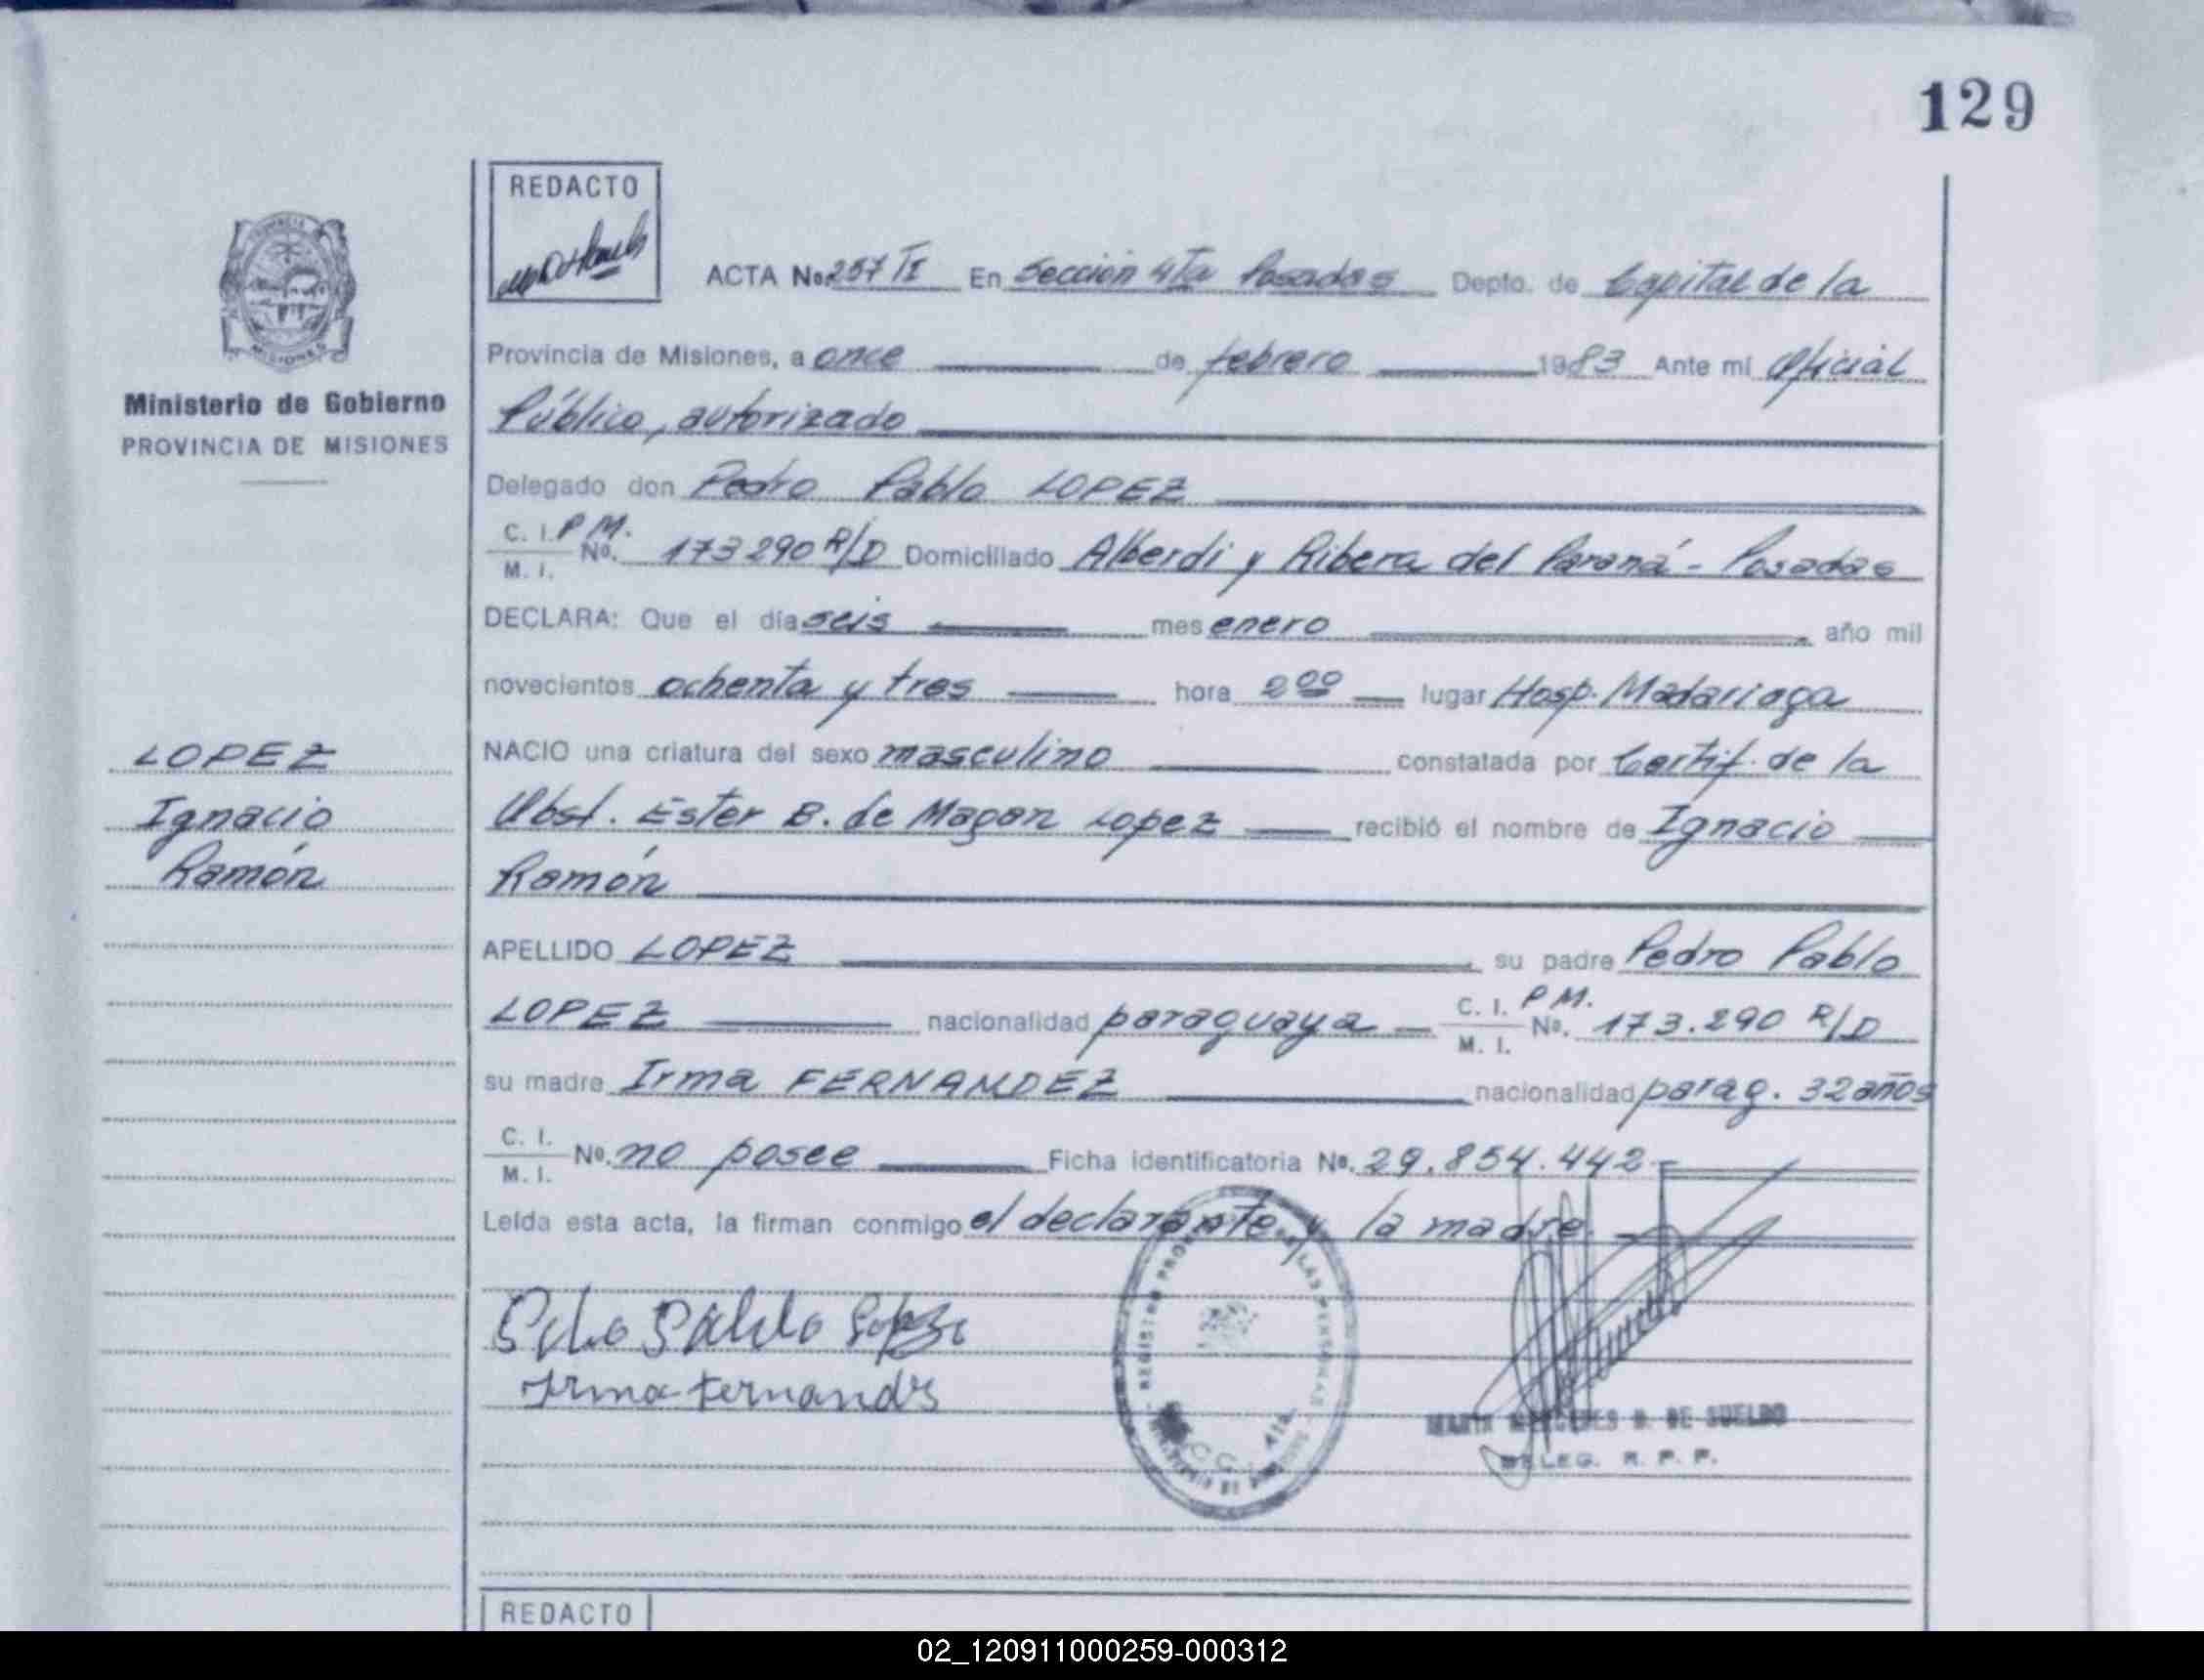 129
REDACTO
ACTA No. 257 TI En Sección 4Ta Posadas Depto. de Capital de la
Provincia de Misiones, a once de febrero 1983 Ante mí Oficial
Público, autorizado
Ministerio de Gobierno
PROVINCIA DE MISIONES
Delegado don Pedro Pablo LOPEZ
C. I. P M.
M. I. No. 173290 R/D Domiciliado Alberdi y Ribera del Paraná - Posadas
DECLARA: Que el día seis mes enero año mil
novecientos ochenta y tres hora 2 00 lugar Hosp. Madariaga
LOPEZ
Ignacio
Ramón
NACIO una criatura del sexo masculino constatada por Certif. de la
Obst. Ester B. de Magan Lopez recibió el nombre de Ignacio
Ramón
APELLIDO LOPEZ su padre Pedro Pablo
LOPEZ nacionalidad paraguaya C. I. P M.
M. I. No. 173.290 R/D
su madre Irma FERNANDEZ nacionalidad parag. 32 años
C. I.
M. I. No. no posee Ficha identificatoria No. 29.854.442-
Leída esta acta, la firman conmigo el declarante y la madre
Pablo
Irma Fernandes
DE SUELDO
DELEG. R. P. P.
REDACTO
02_120911000259-000312